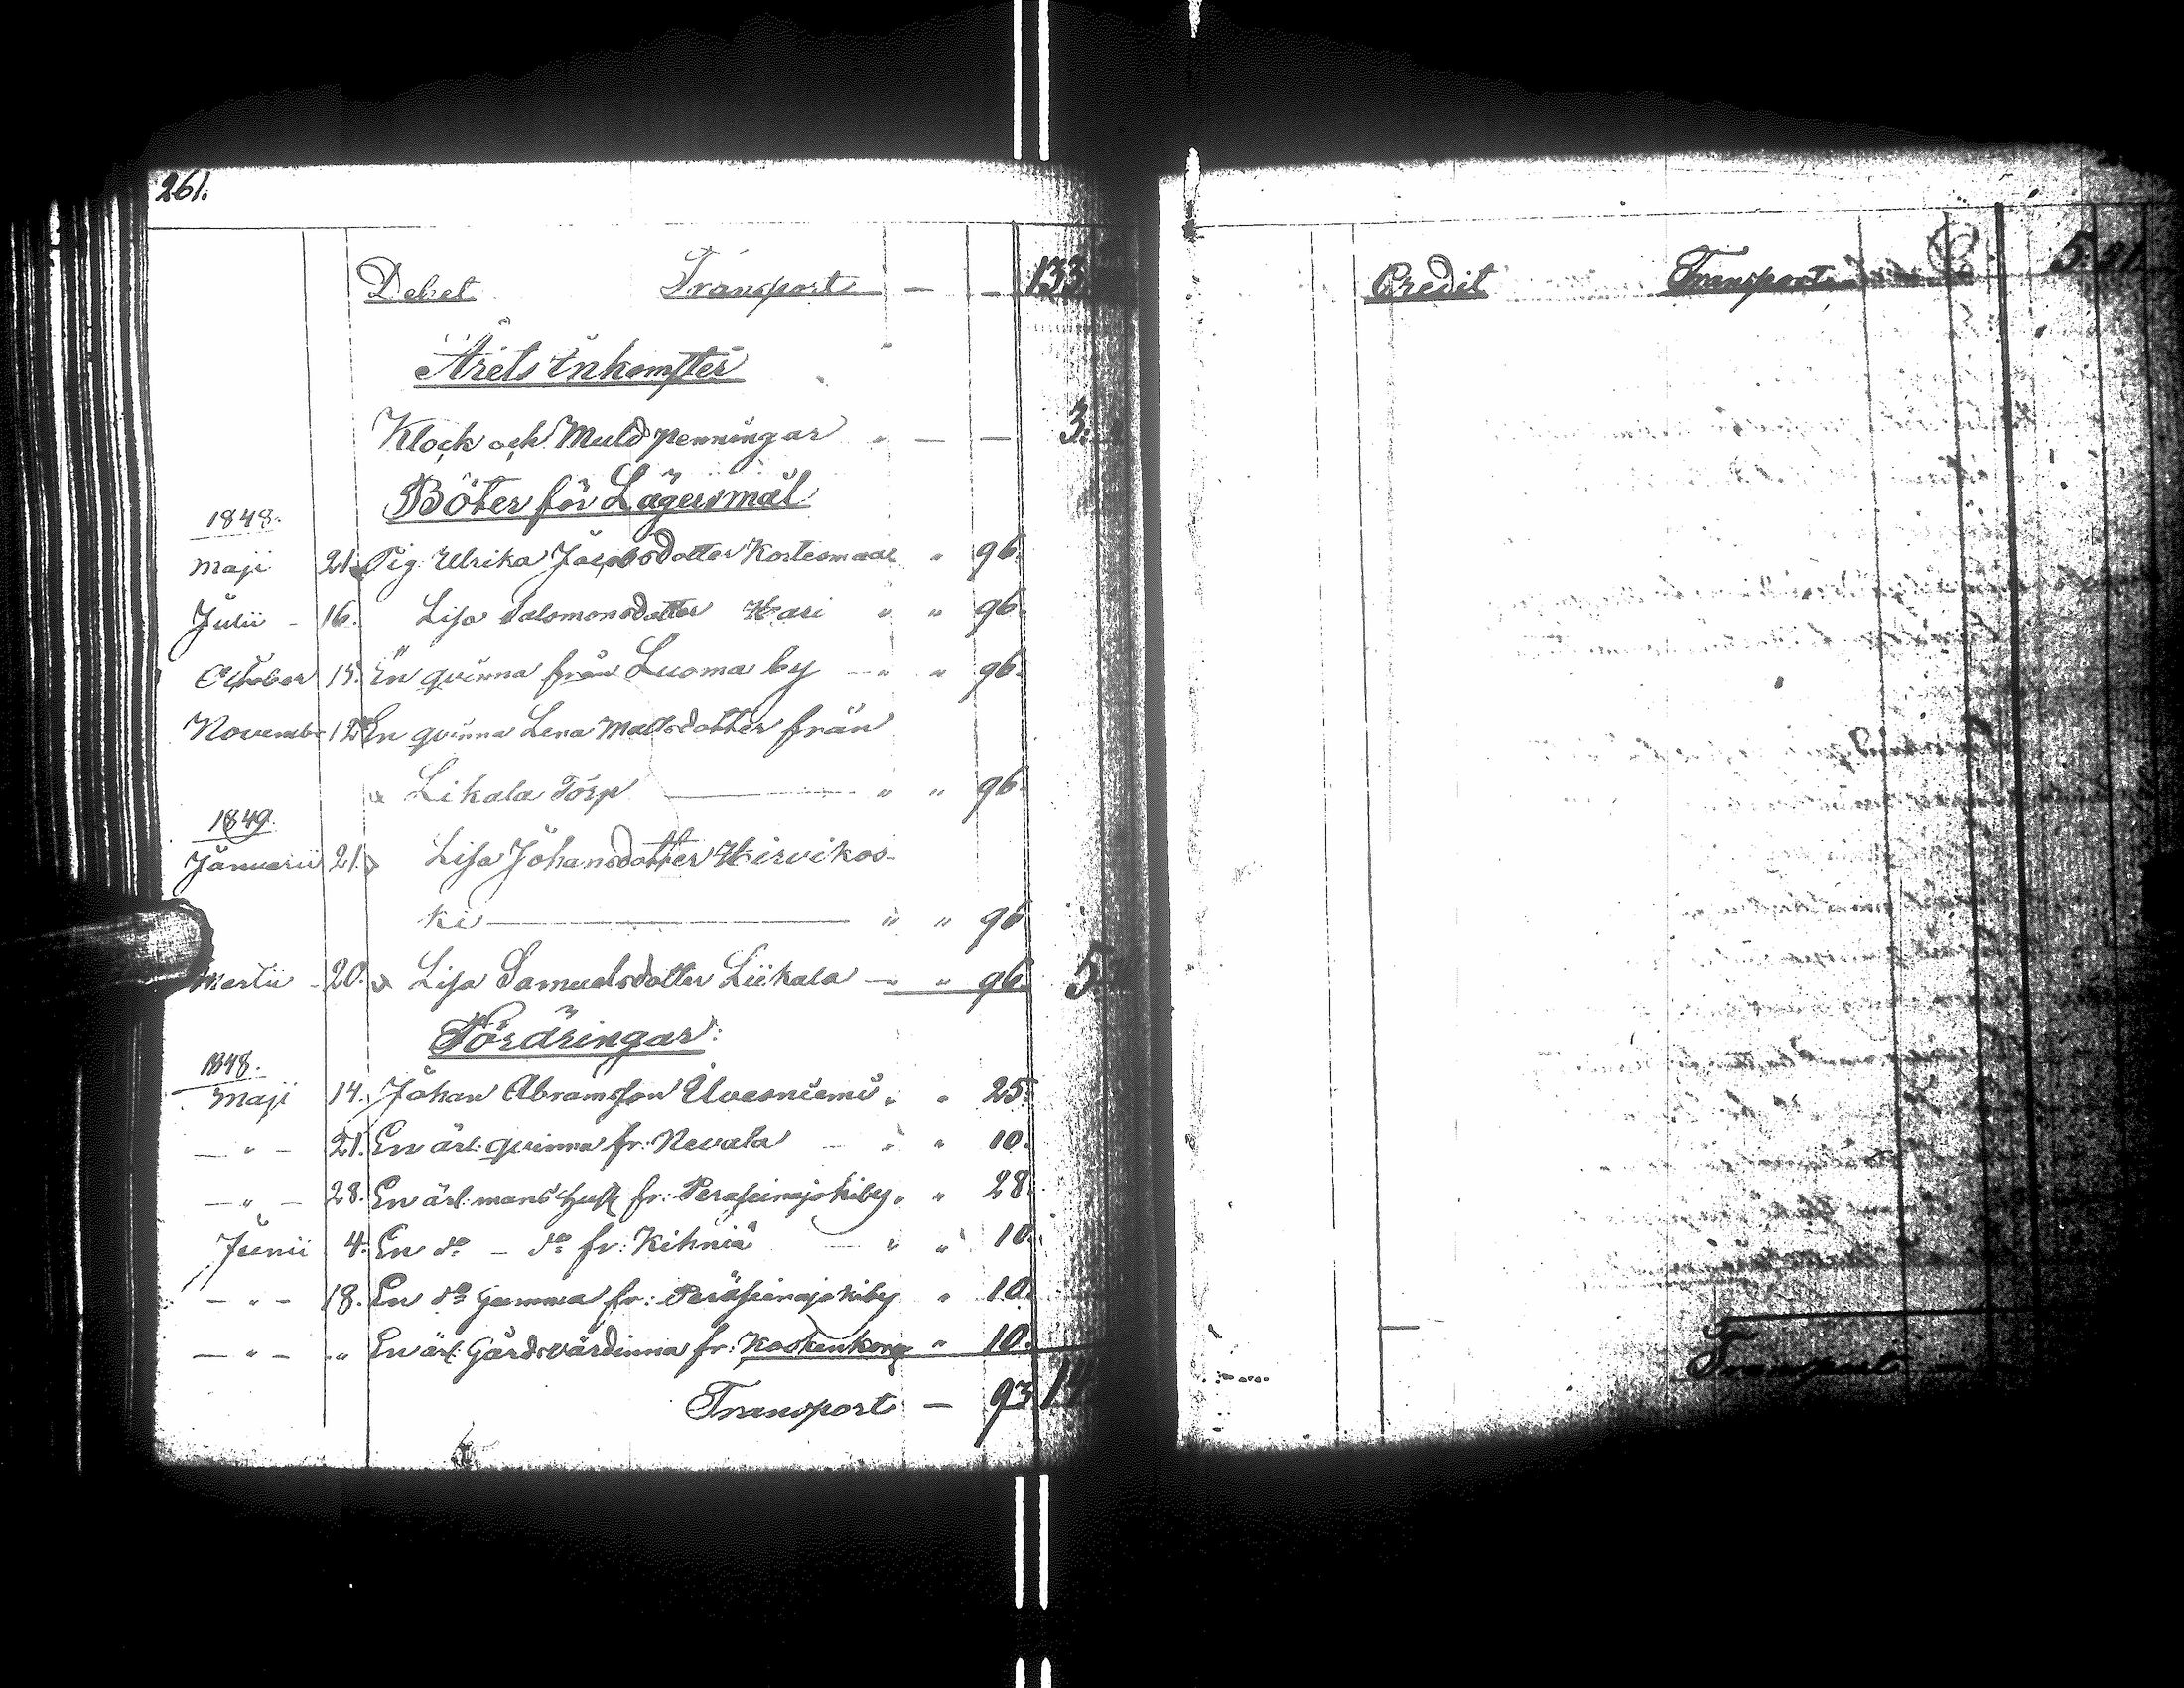 261.
Debet Transport — — 133
Årets Inkomster
Klock och Muld penningar " — — 3:
Böter för Lägersmål
1848.
Maji 21. Pig. Ulrika Jacobsdotter Kortesmaa " 96.
Julii - 16. Lisa Salomonsdotter Hari " " 96.
October 15. En qvinna från Luoma by — " " 96.
Novembr 12. En qvinna Lena Mattsdotter från
Likala Torp — " " 96
1849.
Januarii 21. Lisa Johansdotter Hirvikos-
ki — " " 96
Martii - 20. Lisa Samuelsdotter Liikala — " " 96. 5
Fördringar:
1848.
Maji 14. Johan Abramsson " " 25.
— " — 21. En ärl: qvinna fr: Nevala — " " 10.
— " — 28. En ärl: mans hust fr: Peräseinäjokiby " " 28.
Junii 4. En do — do fr: Kihniä — " " 10.
— " — 18. En do Gumma fr: Peräseinäjokiby " 10.
— " — " En ärl: Gårdsvärdinna fr: Koskenkorg " 10.
Transport — 93
Credit Transport 5: 21.
Transport —